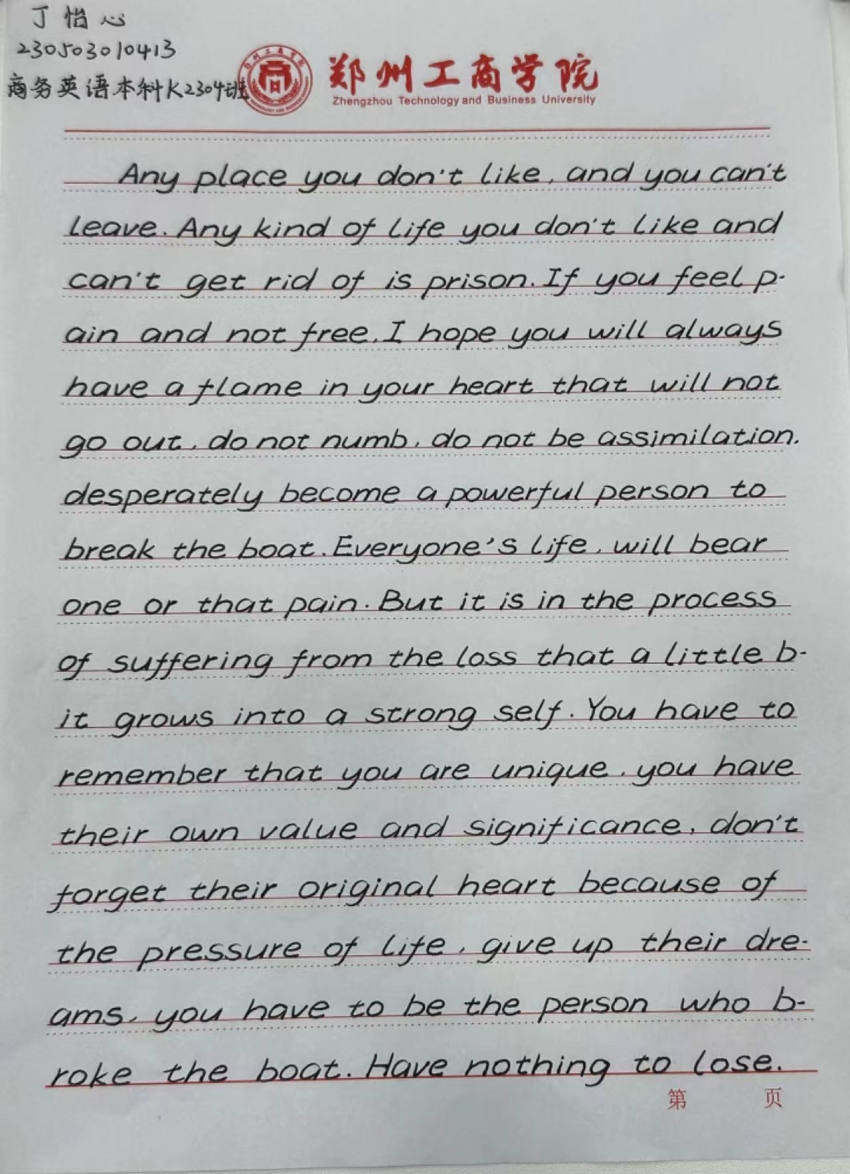 丁怡心
230503010413
商务英语本科K2304班
郑州工商学院
Zhengzhou Technology and Business University
Any place you don't like, and you can't
leave. Any kind of life you don't like and
can't get rid of is prison. If you feel p-
ain and not free, I hope you will always
have a flame in your heart that will not
go out, do not numb, do not be assimilation.
desperately become a powerful person to
break the boat. Everyone's life, will bear
one or that pain. But it is in the process
of suffering from the loss that a little b-
it grows into a strong self. You have to
remember that you are unique, you have
their own value and significance, don't
forget their original heart because of
the pressure of life, give up their dre-
ams, you have to be the person who b-
roke the boat. Have nothing to lose.
第 页